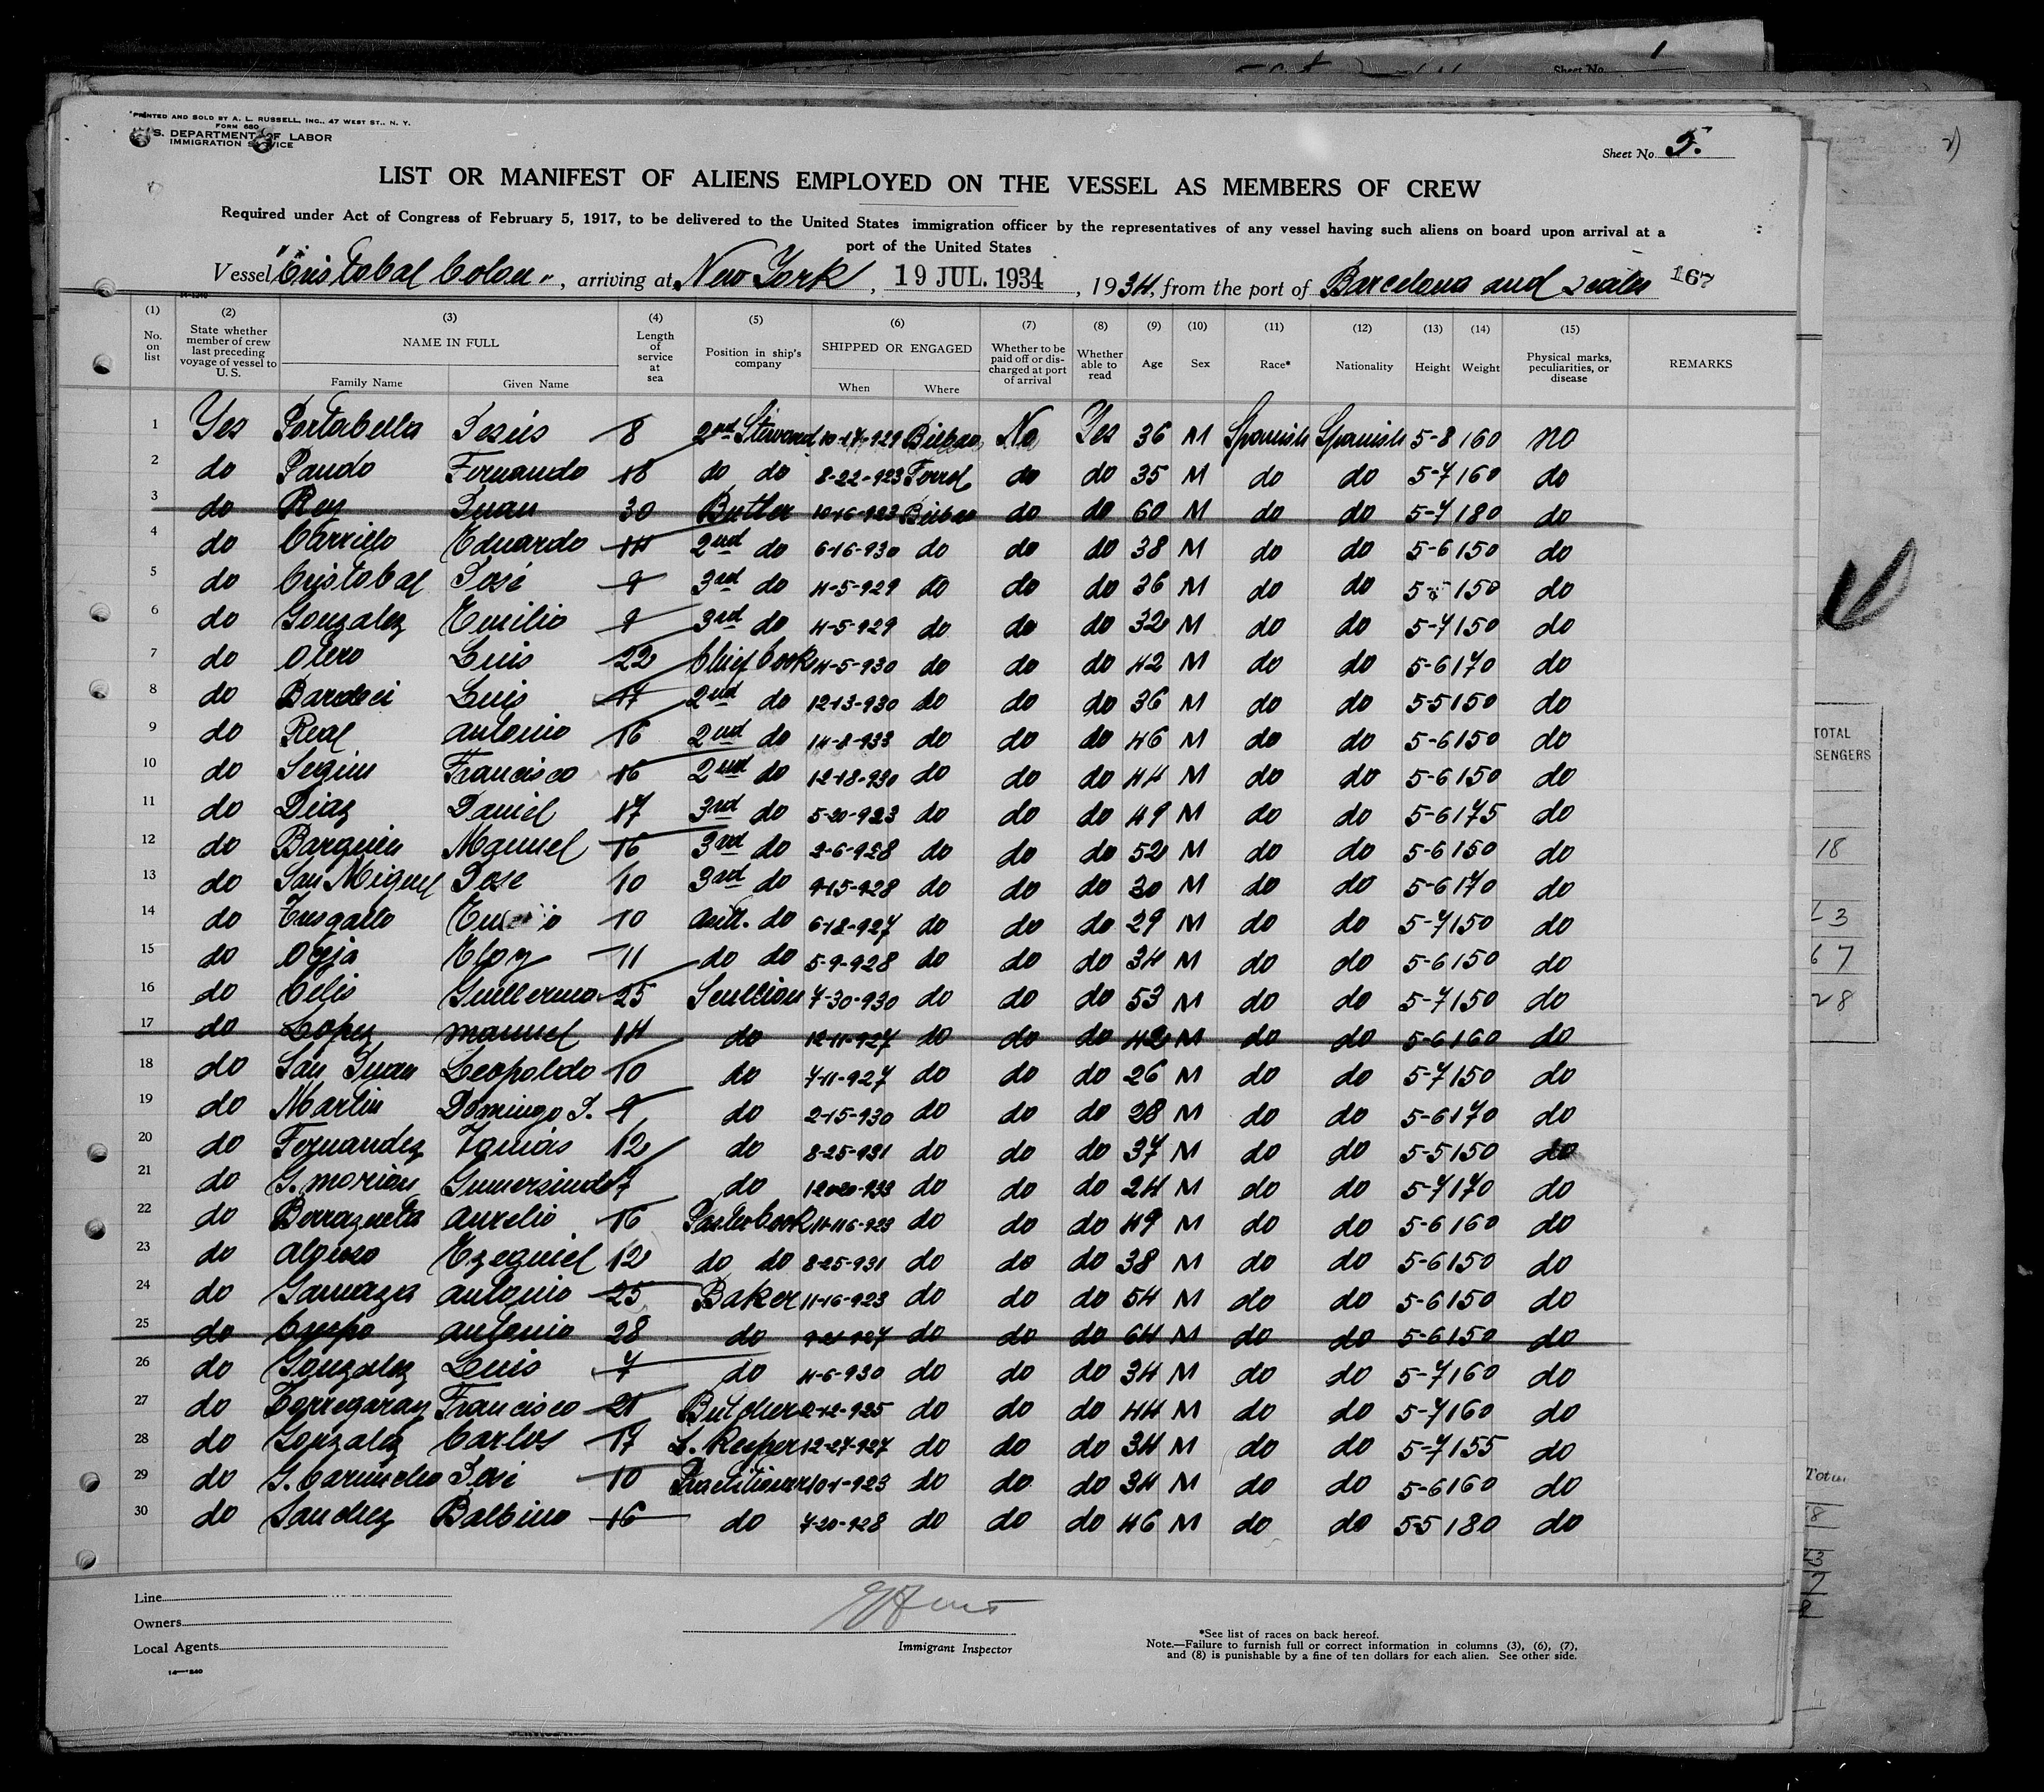 PRINTED AND SOLD BY A. L. RUSSELL, INC., 47 WEST ST., N. Y.
FORM 680
U. S. DEPARTMENT OF LABOR
IMMIGRATION SERVICE
Sheet No. 5.
LIST OR MANIFEST OF ALIENS EMPLOYED ON THE VESSEL AS MEMBERS OF CREW
Required under Act of Congress of February 5, 1917, to be delivered to the United States immigration officer by the representatives of any vessel having such aliens on board upon arrival at a
port of the United States
Vessel "Cristobal Colon", arriving at New York, 19 JUL. 1934, 1934, from the port of Barcelona and scales 167
(1) (2) (3) (4) (5) (6) (7) (8) (9) (10) (11) (12) (13) (14) (15)
No. on list State whether member of crew last preceding voyage of vessel to U. S. NAME IN FULL Family Name Given Name Length of service at sea Position in ship's company SHIPPED OR ENGAGED When Where Whether to be paid off or discharged at port of arrival Whether able to read Age Sex Race* Nationality Height Weight Physical marks, peculiarities, or disease REMARKS
1 Yes Portabella Jesús 8 2nd Steward 10-27-929 Bilbao No Yes 36 M Spanish Spanish 5-8 160 no
2 do Pando Fernando 18 do do 8-22-923 Ferrol do do 35 M do do 5-7 160 do
3 do Rey Juan 30 Butler 10-16-923 Bilbao do do 60 M do do 5-7 180 do
4 do Carriedo Eduardo 14 2nd do 6-16-930 do do do 38 M do do 5-6 150 do
5 do Cristobal José 9 3rd do 4-5-929 do do do 36 M do do 150 do
6 do Gonzalez Emilio 9 3rd do 4-5-929 do do do 32 M do do 5-7 150 do
7 do Otero Luis 22 Chief Cook 4-5-930 do do do 42 M do do 5-6 170 do
8 do Bardeci Luis 17 2nd do 12-13-930 do do do 36 M do do 5-5 150 do
9 do Real Antonio 16 2nd do 14-8-933 do do do 46 M do do 5-6 150 do
10 do Seguin Francisco 16 2nd do 12-18-930 do do do 44 M do do 5-6 150 do
11 do Diaz Daniel 17 3rd do 5-20-923 do do do 49 M do do 5-6 175 do
12 do Barquin Manuel 16 3rd do 2-6-928 do do do 52 M do do 5-6 150 do
13 do San Miguel Jose 10 3rd do 9-15-928 do do do 30 M do do 5-6 170 do
14 do 10 do 6-18-927 do do do 29 M do do 5-7 150 do
15 do Eloy 11 do do 5-9-928 do do do 34 M do do 5-6 150 do
16 do Celis Guillermo 25 Scullion 7-30-930 do do do 53 M do do 5-7 150 do
17 do Lopez Manuel 14 do 12-11-927 do do do 42 M do do 5-6 160 do
18 do San Juan Leopoldo 10 do 7-11-927 do do do 26 M do do 5-7 150 do
19 do Martin Domingo J. 9 do 2-15-930 do do do 28 M do do 5-6 170 do
20 do Fernandez 12 do 8-25-931 do do do 37 M do do 5-5 150 do
21 do G. Moriou Gumersindo 7 do 933 do do do 24 M do do 5-7 170 do
22 do Berrazueta Aurelio 16 Cook 11-16-923 do do do 49 M do do 5-6 160 do
23 do Alonso Ezequiel 12 do do 8-25-931 do do do 38 M do do 5-6 150 do
24 do Gamaza Antonio 25 Baker 11-16-923 do do do 54 M do do 5-6 150 do
25 do Crespo Antonio 28 do 927 do do do 64 M do do 5-6 150 do
26 do Gonzalez Luis 7 do 4-6-930 do do do 34 M do do 5-7 160 do
27 do Torregaray Francisco 21 Butcher 2-12-925 do do do 44 M do do 5-7 160 do
28 do Gonzalez Carlos 17 S. Keeper 12-27-927 do do do 34 M do do 5-7 155 do
29 do G. Camucho José 10 Practitioner 10-1-923 do do do 34 M do do 5-6 160 do
30 do Sanchez Balbino 16 do 7-20-928 do do do 46 M do do 5-5 180 do
Line
Owners
Local Agents
Immigrant Inspector
*See list of races on back hereof.
Note.—Failure to furnish full or correct information in columns (3), (6), (7),
and (8) is punishable by a fine of ten dollars for each alien. See other side.
14—240
Sheet No. 1
TOTAL
SENGERS
18
3
67
28
Total